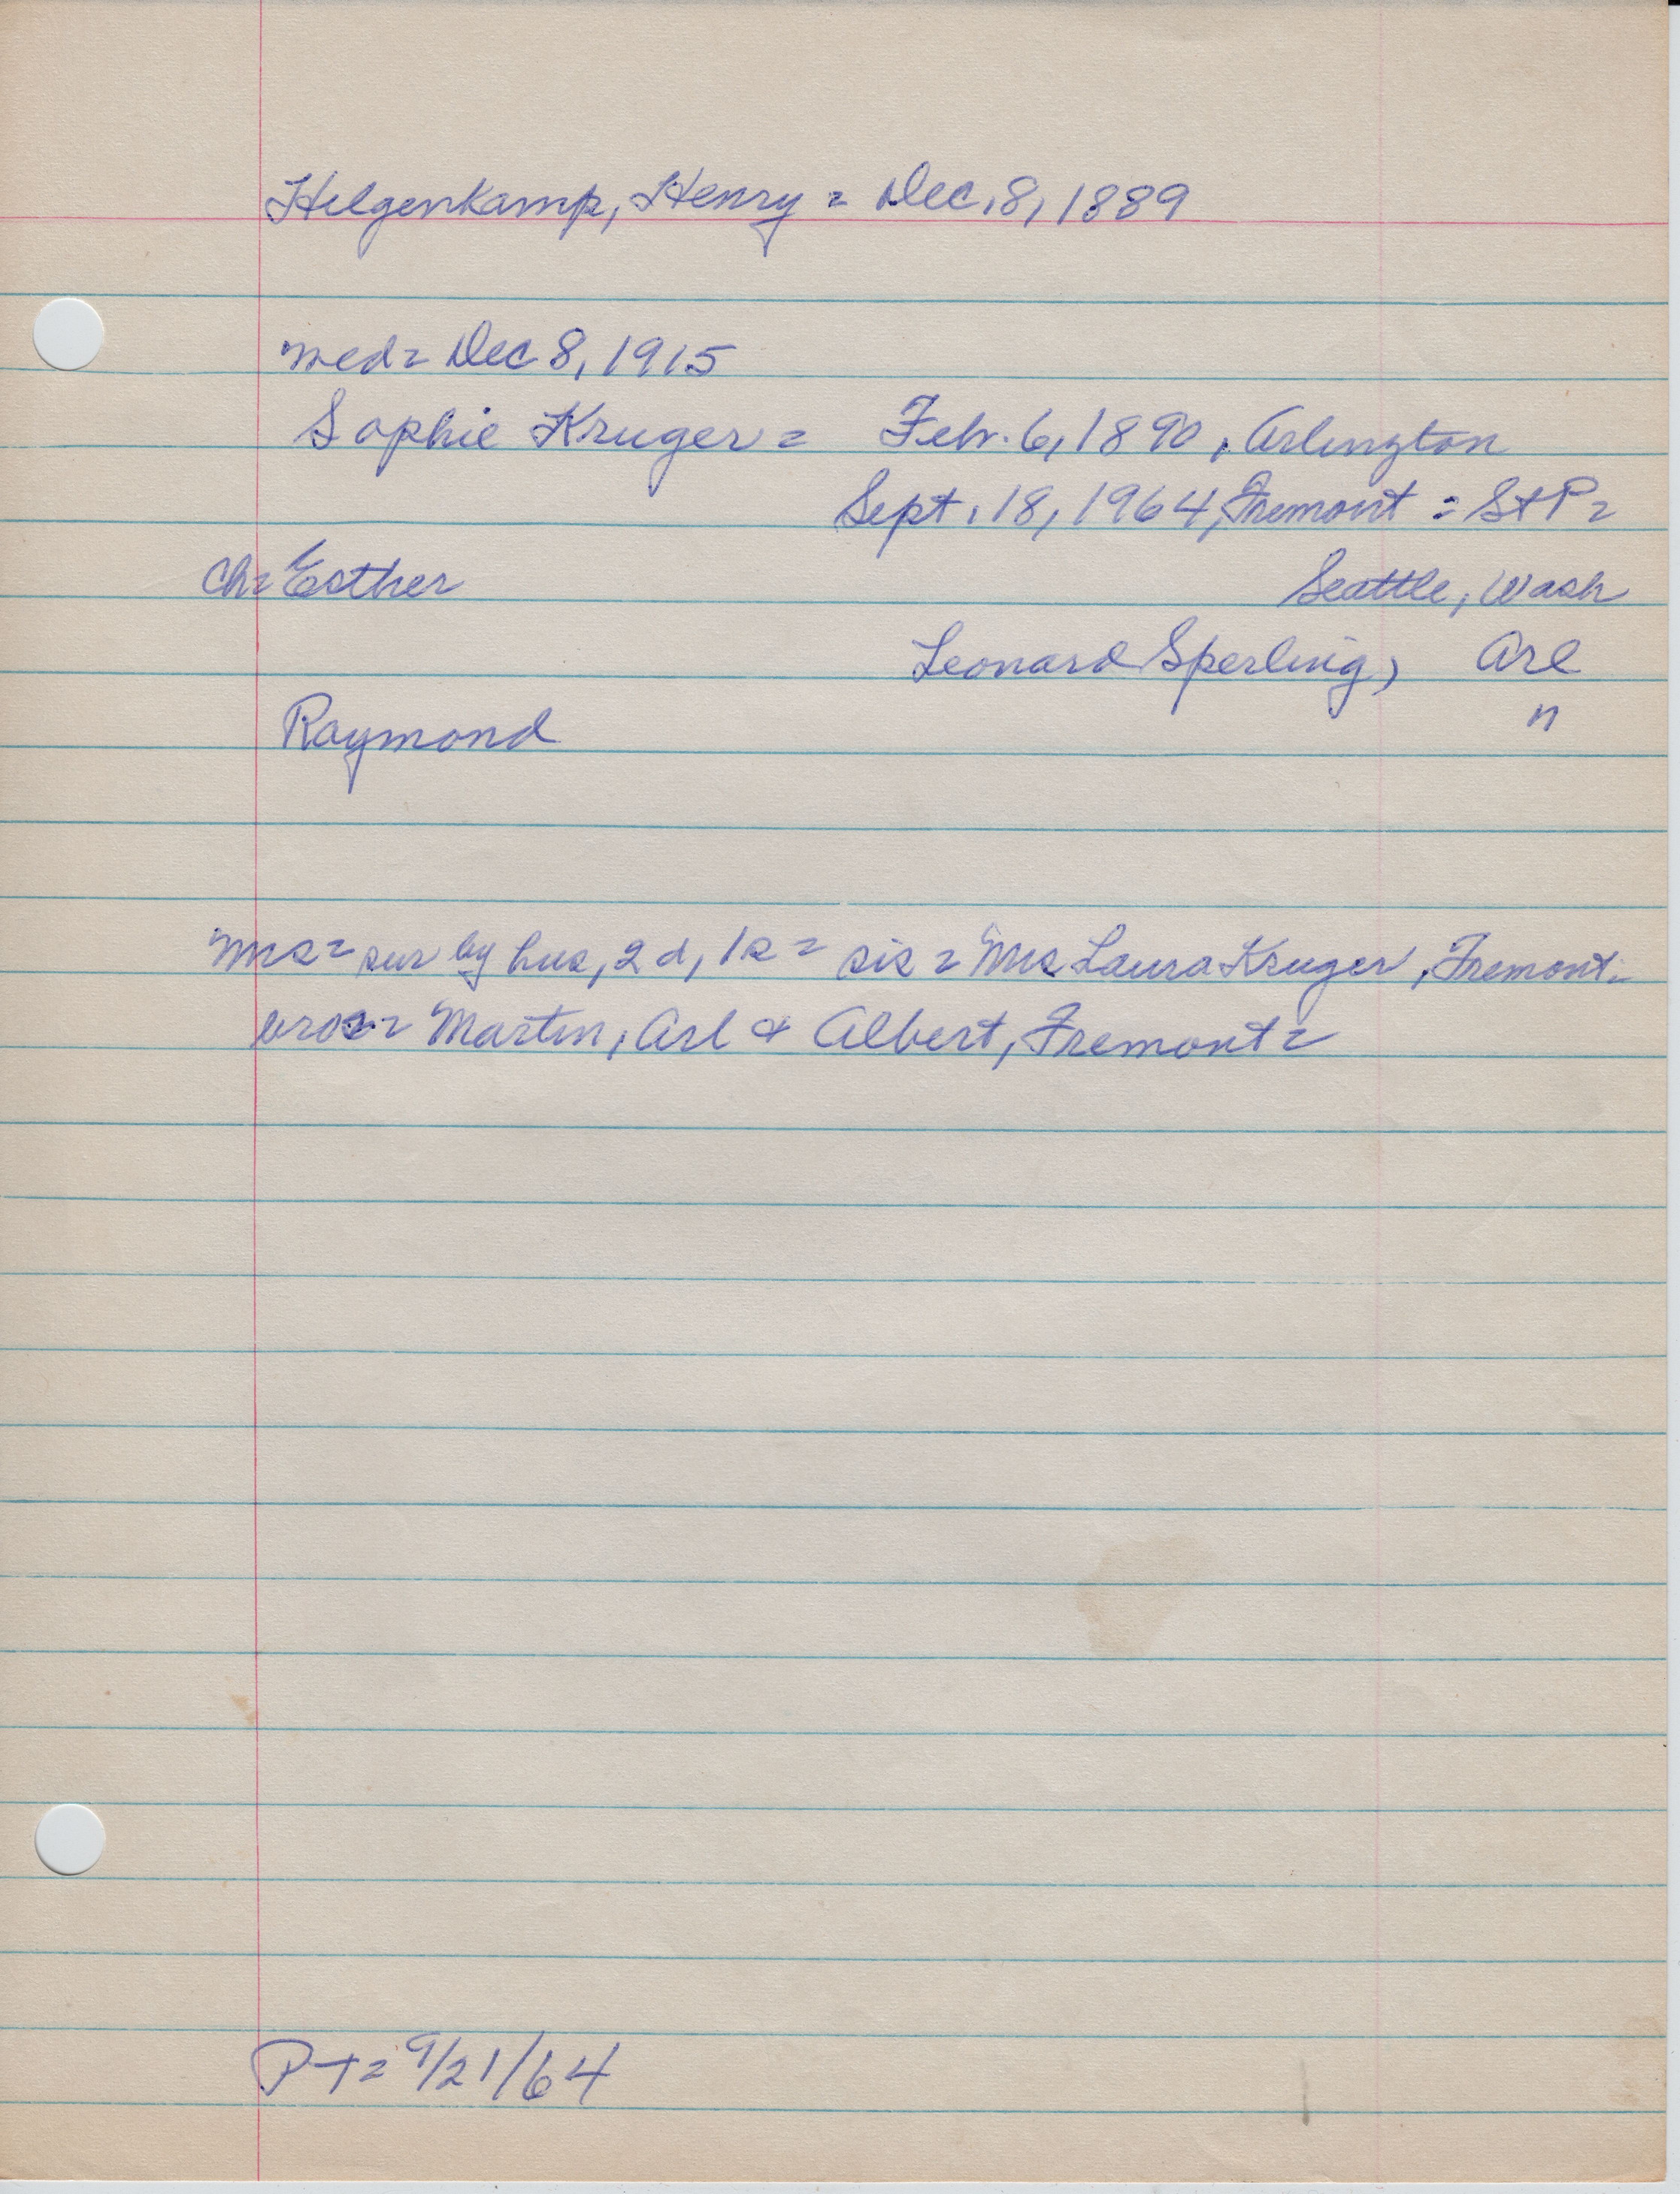 Helgenkamp, Henry = Dec. 8, 1889
med = Dec 8, 1915
Sophie Kruger = Feb. 6, 1890, Arlington
Sept. 18, 1964, Fremont = St P =
Ch = Esther Seattle, Wash
Leonard Sperling, Arl
Raymond "
Mrs = sur by hus, 2 d, 1 s = sis = Mrs Laura Kruger, Fremont =
bros = Martin, Arl & Albert, Fremont =
PT = 9/21/64